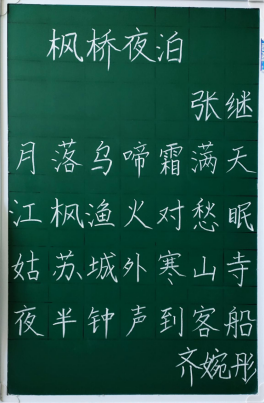 枫桥夜泊
张继
月落乌啼霜满天
江枫渔火对愁眠
姑苏城外寒山寺
夜半钟声到客船
齐婉彤